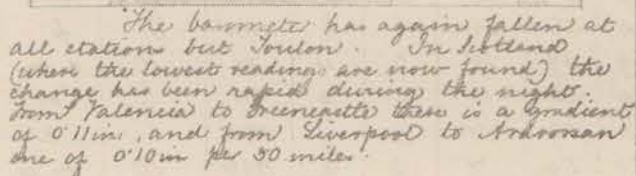 The barometer has again fallen at
all stations but Toulon. In Scotland
(where the lowest readings are now found) the
change has been rapid during the night.
From Valencia to Greencastle there is a gradient
of 0.11in., and from Liverpool to Ardrossan
one of 0.10in per 50 miles.